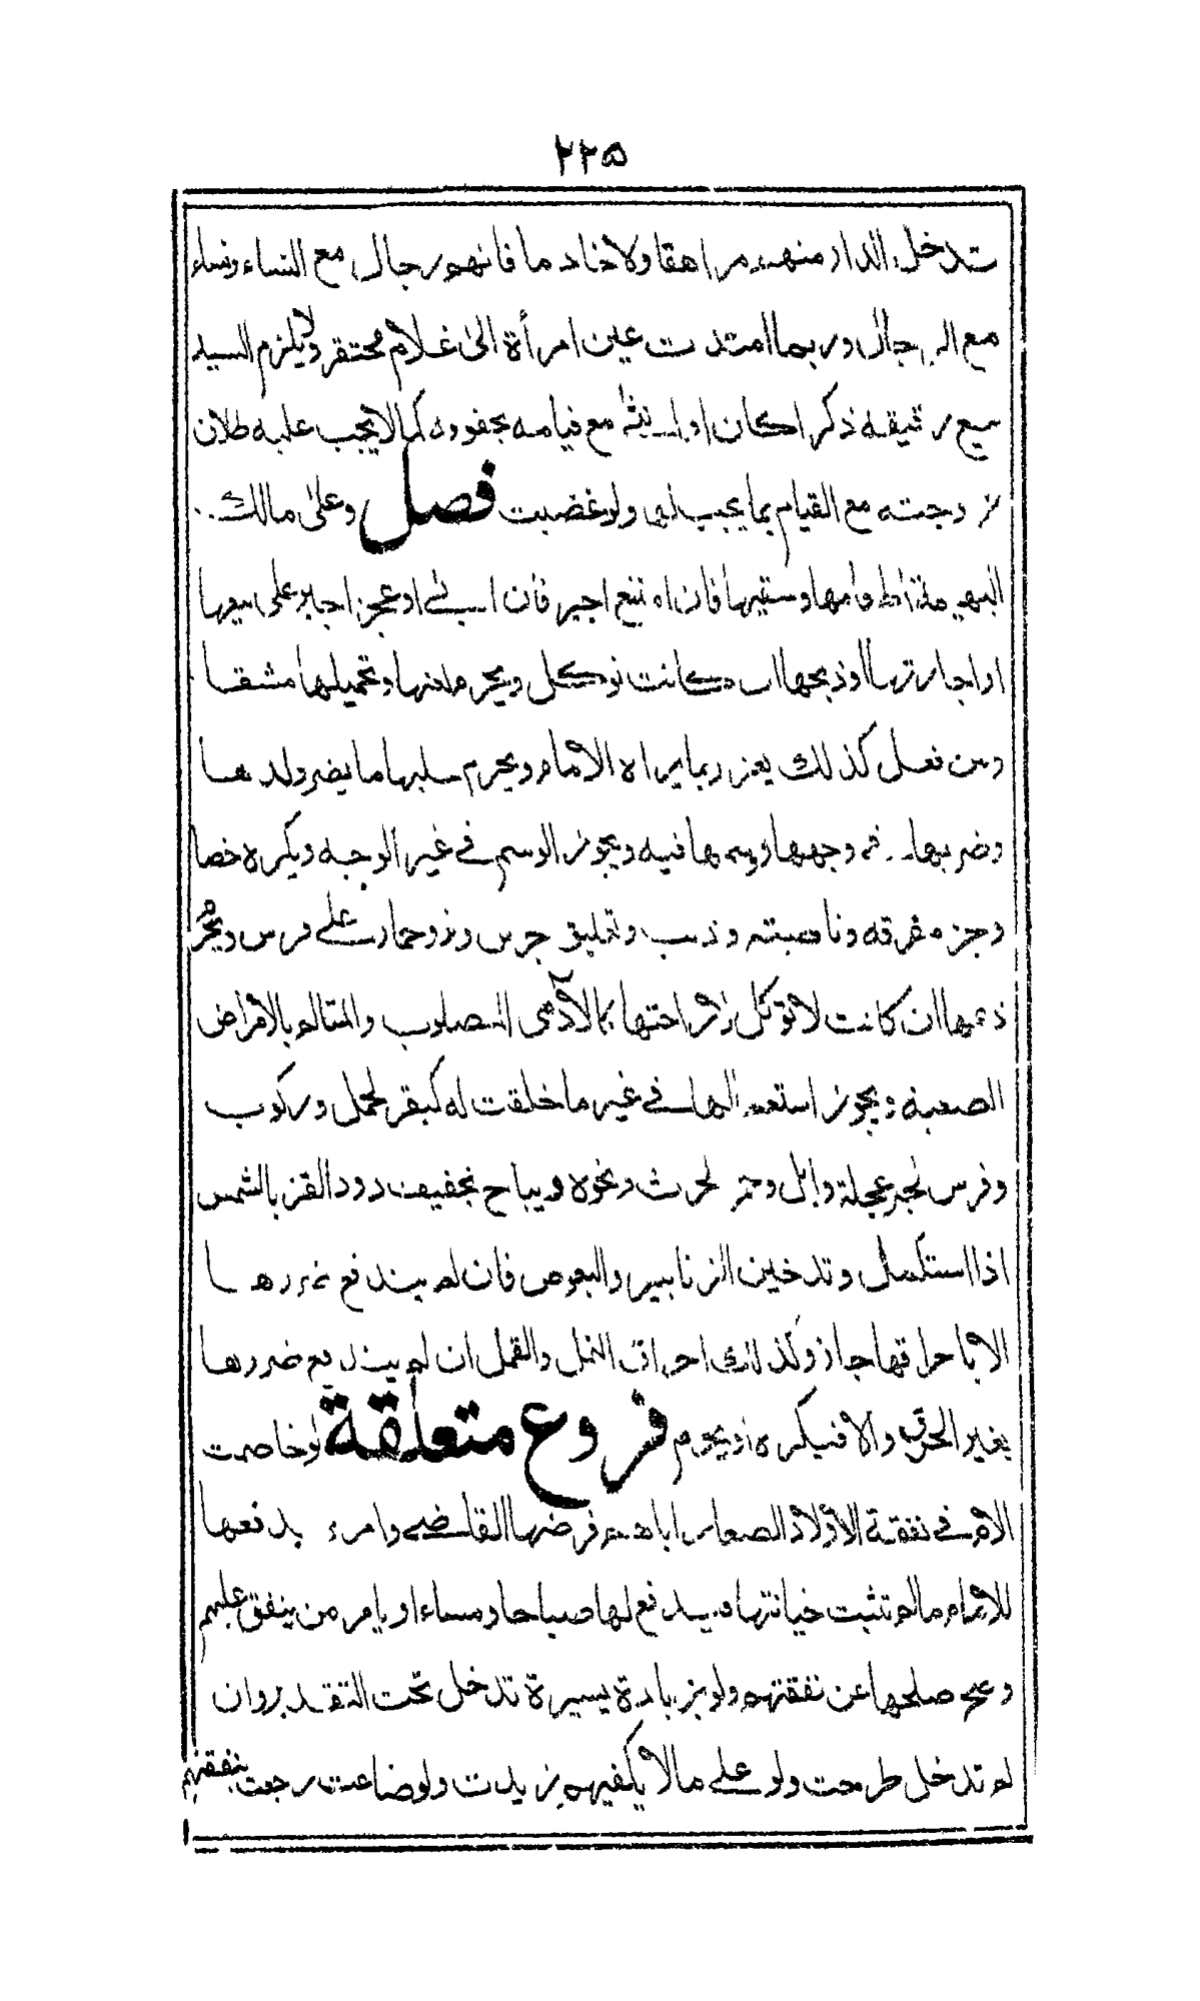 ٢٢٥
تدخل الدار منهم مراهقا ولا خادما فانهم رجال مع النساء ونساء
مع الرجال وربما امتدت عين امرأة الى غلام محتقر ولا يلزم السيد
بيع رقيقه ذكرا كان او انثى مع قيامه بحقوقه كما لا يجب عليه طلاق
زوجته مع القيام بما يجب لها ولو غضبت فصل وعلى مالك
البهيمة اطعامها وسقيها فان امتنع اجبر فان ابى او عجز اجبر على بيعها
او اجارتها او ذبحها ان كانت توكل ويحرم لعنها وتحميلها مشقا
ومن فعل كذلك يعزر بما يراه الامام ويحرم حلبها ما يضر ولدها
وضربها في وجهها ووسمها فيه ويجوز الوسم في غير الوجه ويكره خصا
وجز معرفه وناصيته وذنب وتعليق جرس ونزو حمار على فرس ويحرم
ذبحها ان كانت لا توكل لاراحتها كالآدمى المصلوب والمتالم بالامراض
الصعبة ويجوز استعمالها في غير ما خلقت له كبقر لحمل وركوب
وفرس لجر عجلة وابل وحمر لحرث ونحوه ويباح تجفيف دود القز بالشمس
اذا استكمل وتدخين الزنابير والبعوض فان لم يندفع ضررها
الا باحراقها جاز وكذلك احراق النمل والقمل ان لم يندفع ضررها
بغير الحرق والا فيكره او يحرم فروع متعلقة لو خاصمت
الام في نفقة الاولاد الصغار اباهم فرضها القاضي وامره بدفعها
للام ما لم تثبت خيانتها فيدفع لها صباحا ومساء او يامر من ينفق عليهم
وصح صلحها عن نفقتهم ولو بزيادة يسيرة تدخل تحت التقدير وان
لم تدخل طرحت ولو على ما لا يكفيهم زيدت ولو ضاعت رجعت بنفقتهم